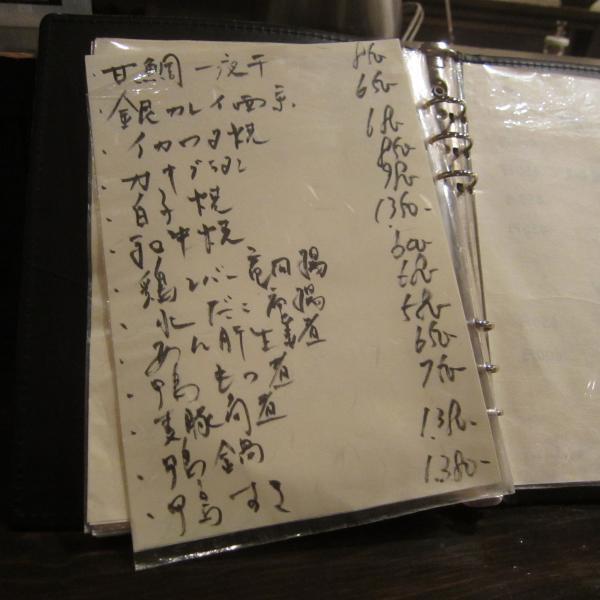 ・甘鯛 一夜干
・銀カレイ西京. 650-
・イカワタ焼 680-
・カキ
・白子焼 980-
・和牛焼
・鶏レバー竜田揚 600-
・水だこ唐揚 680-
・あん肝生姜煮 580-
・鴨もつ煮 650-
・麦豚角煮
・鴨鍋
・鴨すき 1.380-